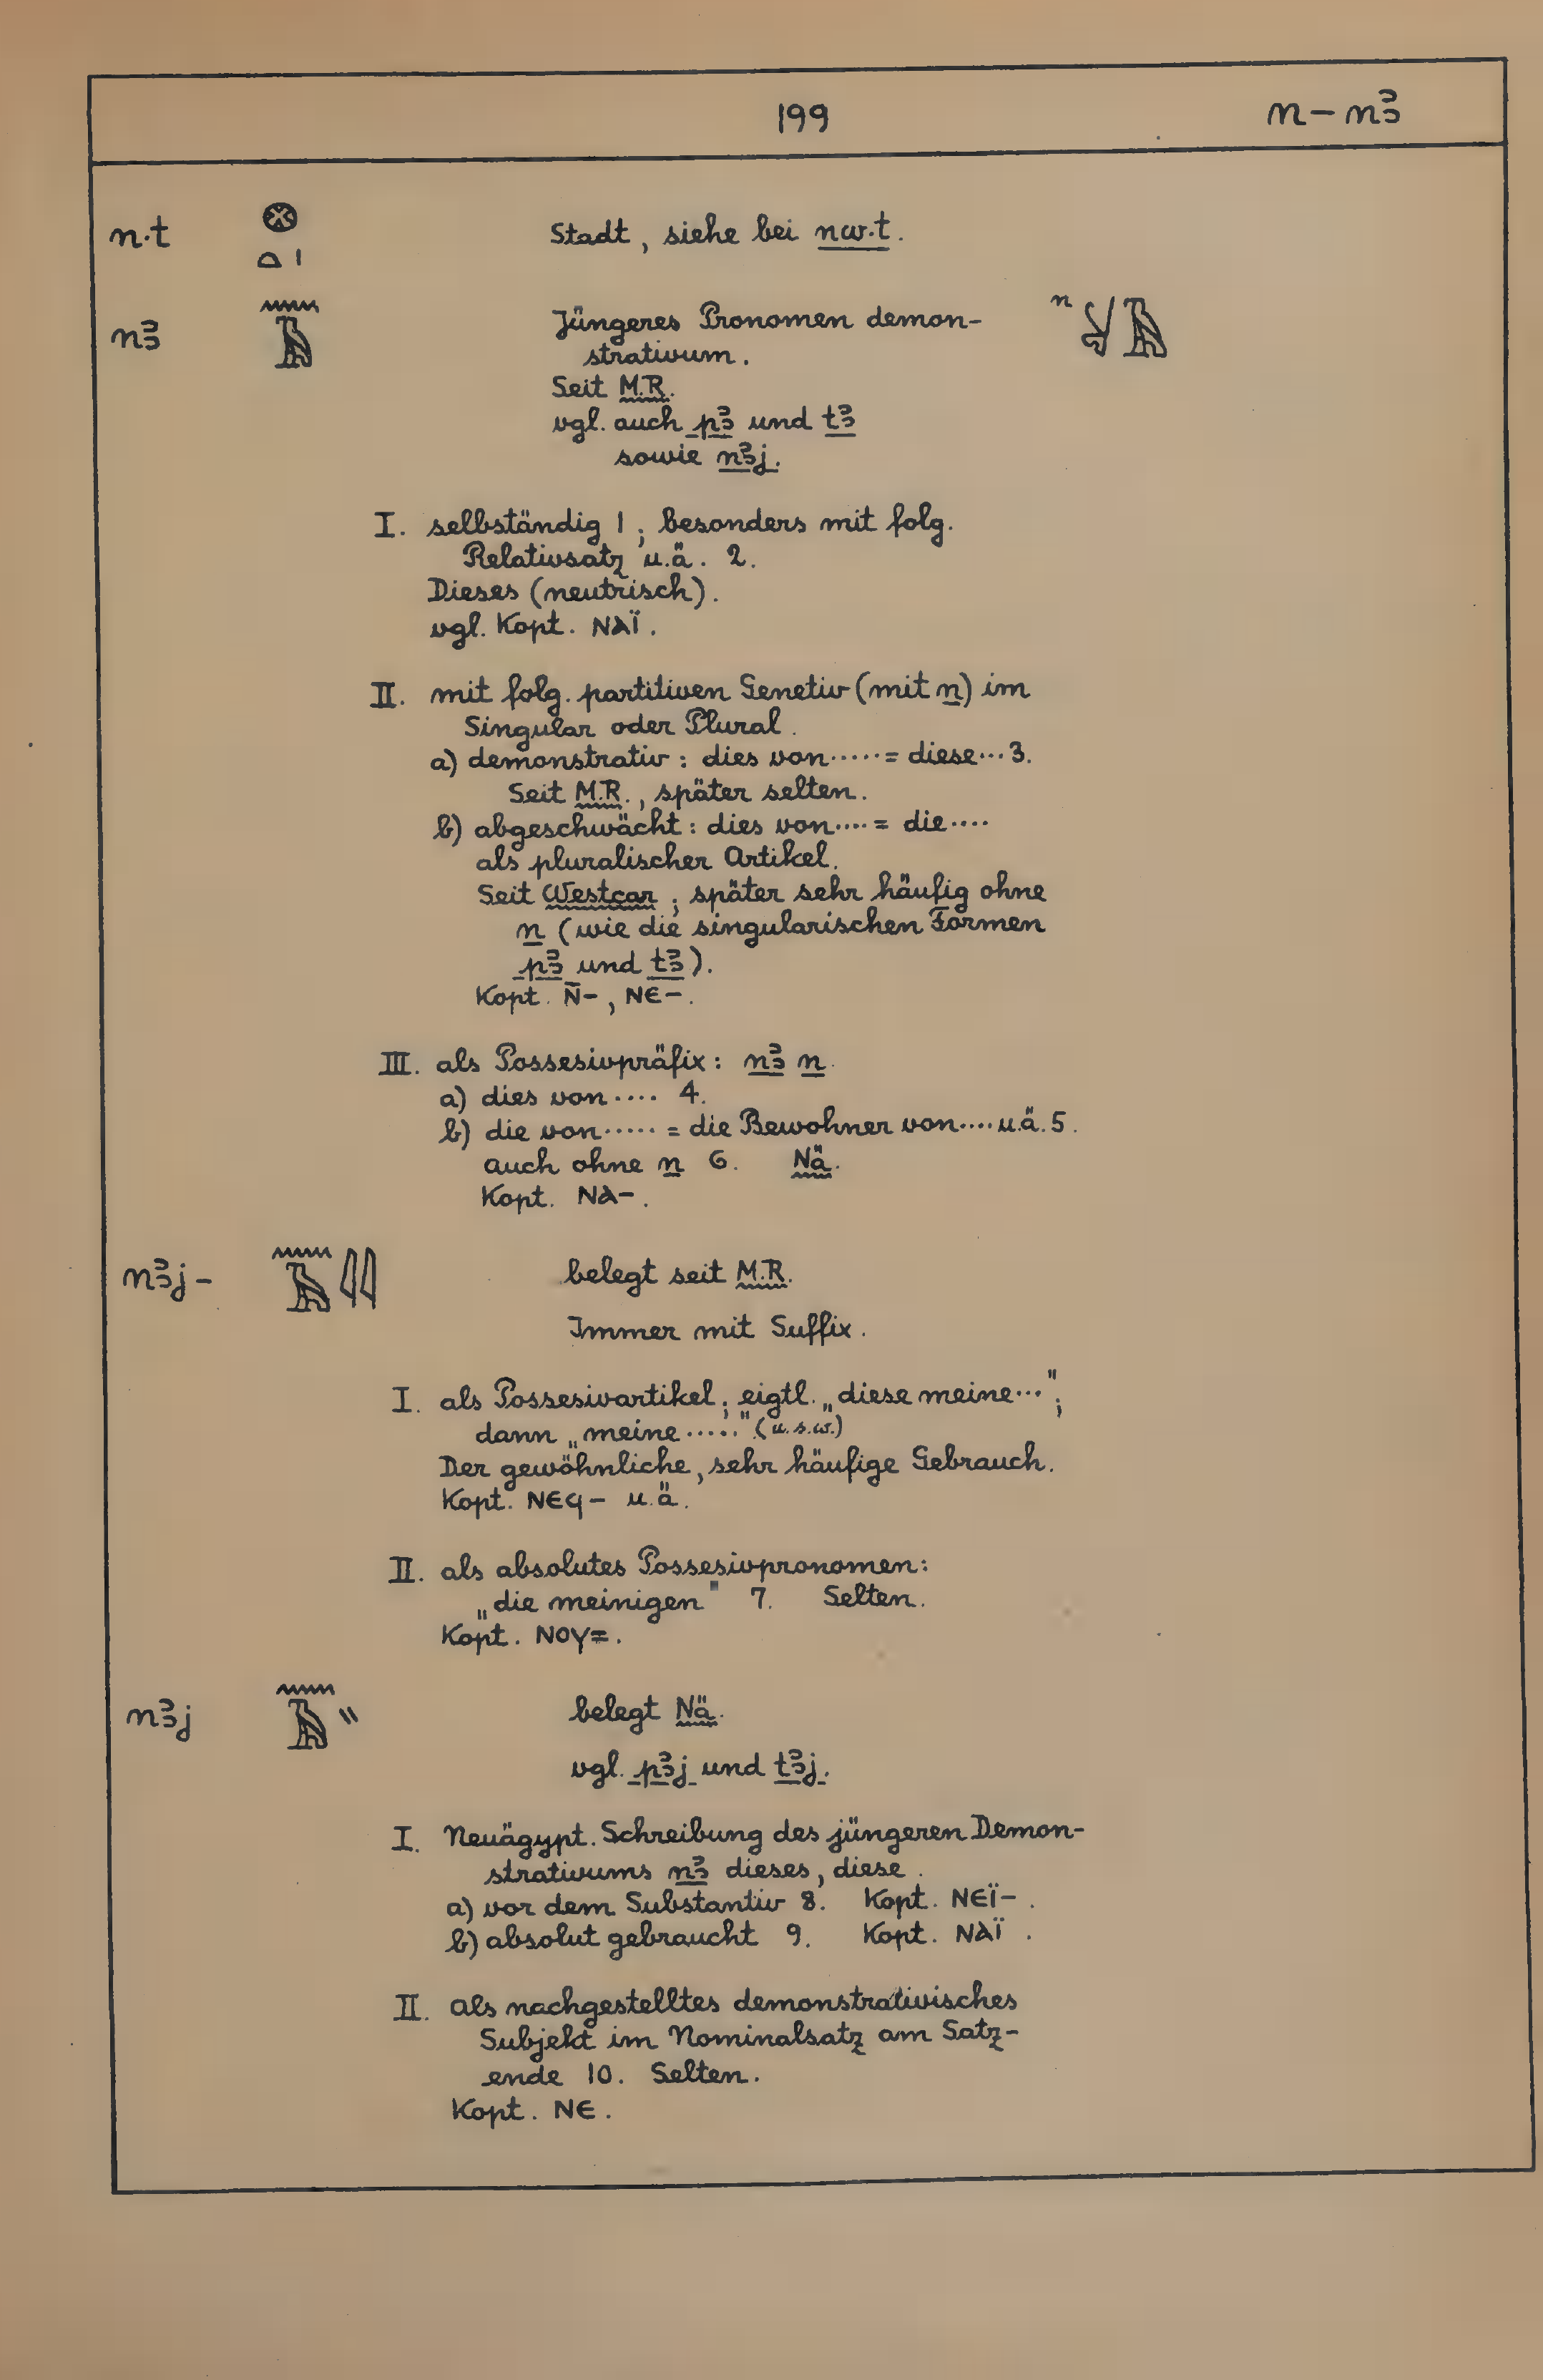 199
n – nꜣ
n.t 𓊖 𓏏𓏤 Stadt, siehe bei nw.t.
nꜣ 𓈖𓄿 Jüngeres Pronomen demon- n 𓍘𓄿
strativum.
Seit M.R.
vgl. auch pꜣ und tꜣ
sowie nꜣj.
I. selbständig 1; besonders mit folg.
Relativsatz u.ä. 2.
Dieses (neutrisch).
vgl. Kopt. ⲚⲀΪ.
II. mit folg. partitiven Genetiv (mit n) im
Singular oder Plural.
a) demonstrativ: dies von····· = diese··· 3.
Seit M.R., später selten.
b) abgeschwächt: dies von···· = die····
als pluralischer Artikel.
Seit Westcar; später sehr häufig ohne
n (wie die singularischen Formen
pꜣ und tꜣ).
Kopt. Ⲛ̄-, ⲚⲈ-.
III. als Possesivpräfix: nꜣ n.
a) dies von···· 4.
b) die von····· = die Bewohner von···· u.ä. 5.
auch ohne n 6. Nä.
Kopt. ⲚⲀ-.
nꜣj - 𓈖𓄿𓇌 belegt seit M.R.
Immer mit Suffix.
I. als Possesivartikel; eigtl. „diese meine···";
dann „meine·····" (u.s.w.)
Der gewöhnliche, sehr häufige Gebrauch.
Kopt. ⲚⲈϤ- u.ä.
II. als absolutes Possesivpronomen:
„die meinigen" 7. Selten.
Kopt. ⲚⲞⲨ=.
nꜣj 𓈖𓄿𓏭 belegt Nä.
vgl. pꜣj und tꜣj.
I. Neuägypt. Schreibung des jüngeren Demon-
strativums nꜣ dieses, diese.
a) vor dem Substantiv 8. Kopt. ⲚⲈΪ-.
b) absolut gebraucht 9. Kopt. ⲚⲀΪ.
II. als nachgestelltes demonstrativisches
Subjekt im Nominalsatz am Satz-
ende 10. Selten.
Kopt. ⲚⲈ.